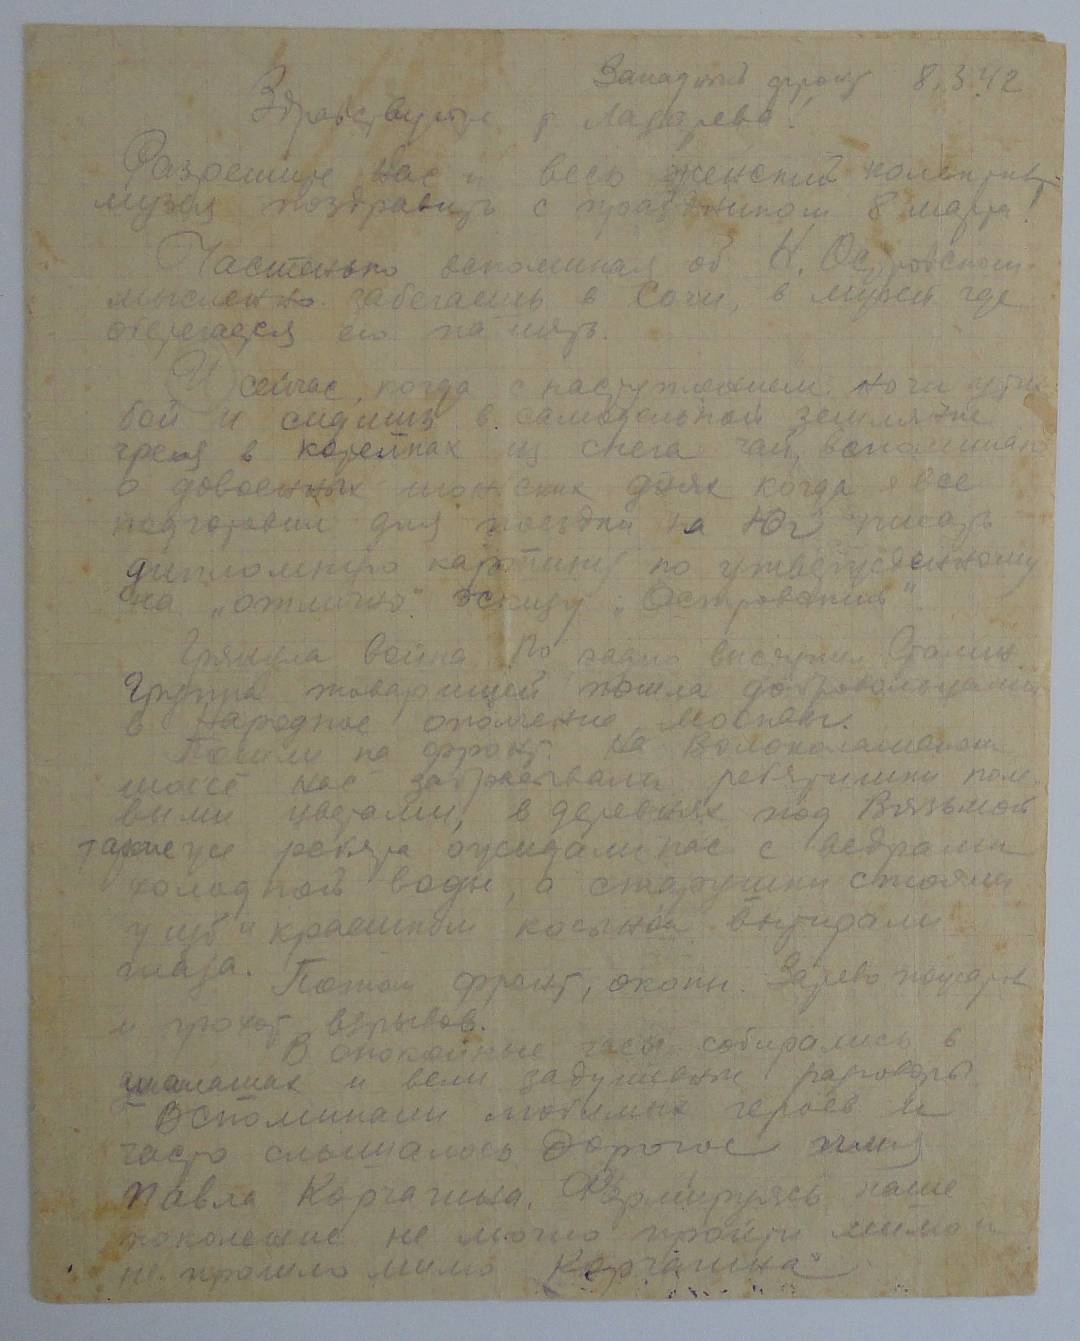 Западный фронт 8.3.42
Здравствуйте т Лазарева!
Разрешите Вас и весь женский коллектив
музея поздравить с праздником 8 марта!
Частенько вспоминая об Н. Островском
мысленно забегаешь в Сочи, в музей где
оберегается его память.
И сейчас, когда с наступлением ночи
бой и сидишь в самодельной землянке
грея в котелках из снега чай, вспоминаю
о довоенных июньских днях когда я все
подготовил для поездки на Юг писать
дипломную картину по утвержденному
на „отлично" эскизу „Островский".
Грянула война По радио выступил Сталин.
Группа товарищей пошла добровольцами
в народное ополчение Москвы.
Пошли на фронт. На Волоколамском
шоссе нас забрасывали ребятишки поле-
выми цветами, в деревнях под Вязьмой
такие же ребята ожидали нас с ведрами
холодной воды, а старушки стояли
у изб и краешком косынки вытирали
глаза. Потом фронт, окопы. Зарево пожаров
и грохот взрывов.
В спокойные часы собирались в
шалашах и вели задушевные разговоры
Вспоминали любимых героев и
часто слышалось дорогое имя
Павла Корчагина. Формируясь наше
поколение не могло пройти мимо и
не прошло мимо Корчагина